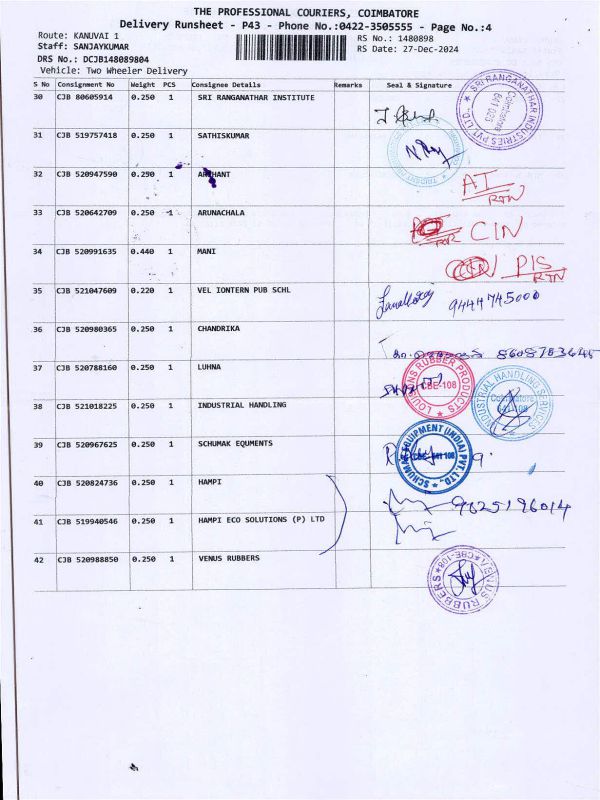 THE PROFESSIONAL COURIERS, COIMBATORE
Delivery Runsheet - P43 - Phone No.:0422-3505555 - Page No.:4
Route: KANUVAI 1 RS No.: 1480898
Staff: SANJAYKUMAR RS Date: 27-Dec-2024
DRS No.: DCJB148089804
Vehicle: Two Wheeler Delivery
S No Consignment No Weight PCS Consignee Details Remarks Seal & Signature
30 CJB 80605914 0.250 1 SRI RANGANATHAR INSTITUTE
SRI RANGANATHAR INDUSTRIES PVT. LTD. Coimbatore 641 025
31 CJB 519757418 0.250 1 SATHISKUMAR
32 CJB 520947590 0.290 1 ARIHANT
AI RTN
33 CJB 520642709 0.250 1 ARUNACHALA
CIN
34 CJB 520991635 0.440 1 MANI
PIS RTN
35 CJB 521047609 0.220 1 VEL IONTERN PUB SCHL
9444745000
36 CJB 520980365 0.250 1 CHANDRIKA
37 CJB 520788160 0.250 1 LUHNA
RUBBER PRODUCTS CBE-108
38 CJB 521018225 0.250 1 INDUSTRIAL HANDLING
INDUSTRIAL HANDLING SERVICES Coimbatore 641 108
39 CJB 520967625 0.250 1 SCHUMAK EQUMENTS
SCHUMAK EQUIPMENT (INDIA) PVT. LTD. CBE-641 108
40 CJB 520824736 0.250 1 HAMPI
9625196014
41 CJB 519940546 0.250 1 HAMPI ECO SOLUTIONS (P) LTD
42 CJB 520988850 0.250 1 VENUS RUBBERS
VENUS RUBBERS CBE-108